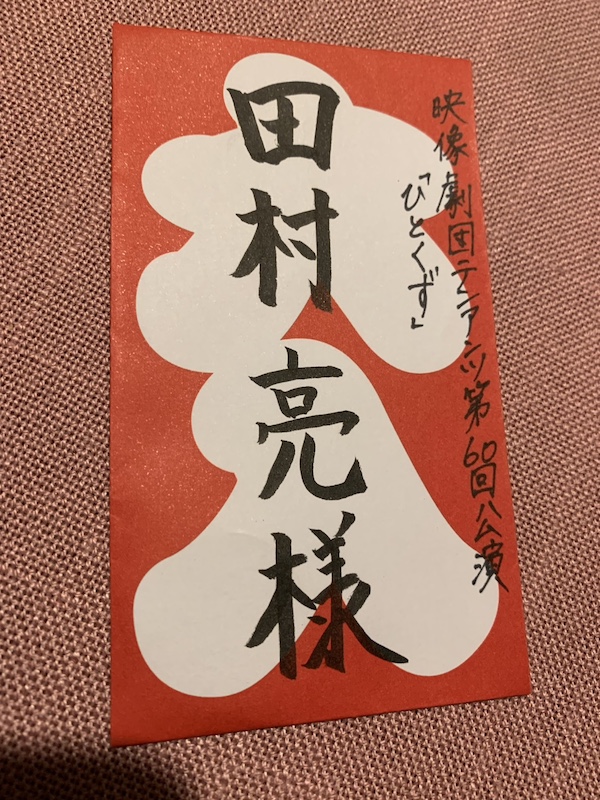 映像劇団テンアンツ第60回公演
「ひとくず」
田村亮様